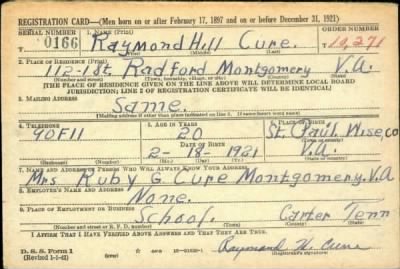 REGISTRATION CARD—(Men born on or after February 17, 1897 and on or before December 31, 1921)
SERIAL NUMBER 1. NAME (Print) ORDER NUMBER
0166 Raymond Hill Cure. 10,271
(First) (Middle) (Last)
2. PLACE OF RESIDENCE (Print)
112-1st Radford Montgomery V.A.
(Number and street) (Town, township, village, or city) (County) (State)
[THE PLACE OF RESIDENCE GIVEN ON THE LINE ABOVE WILL DETERMINE LOCAL BOARD
JURISDICTION; LINE 2 OF REGISTRATION CERTIFICATE WILL BE IDENTICAL]
3. MAILING ADDRESS
Same.
[Mailing address if other than place indicated on line 2. If same insert word same]
4. TELEPHONE 5. AGE IN YEARS 6. PLACE OF BIRTH
40F11 20 St. Paul Wise, co
DATE OF BIRTH (Town or county)
2-18-1921 V.A.
(Exchange) (Number) (Mo.) (Day) (Yr.) (State or country)
7. NAME AND ADDRESS OF PERSON WHO WILL ALWAYS KNOW YOUR ADDRESS
Mrs Ruby G. Cure Montgomery, V.A
8. EMPLOYER'S NAME AND ADDRESS
None.
9. PLACE OF EMPLOYMENT OR BUSINESS
School. Carter Tenn
(Number and street or R. F. D. number) (Town) (County) (State)
I AFFIRM THAT I HAVE VERIFIED ABOVE ANSWERS AND THAT THEY ARE TRUE.
D. S. S. Form 1
(Revised 1-1-42) (over) Raymond H. Cure
(Registrant's signature)